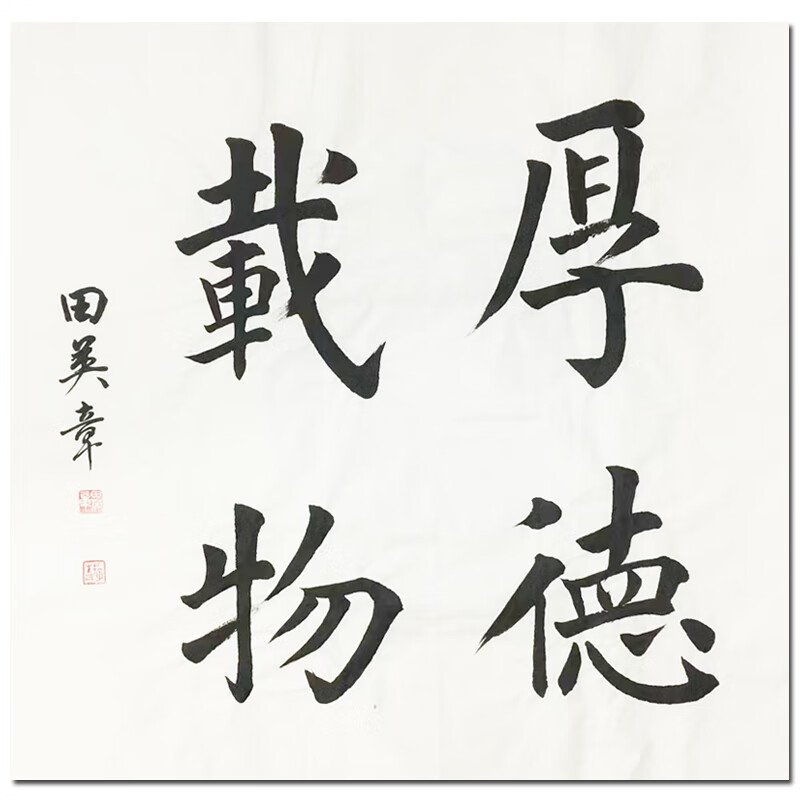 厚德
載物
田英章